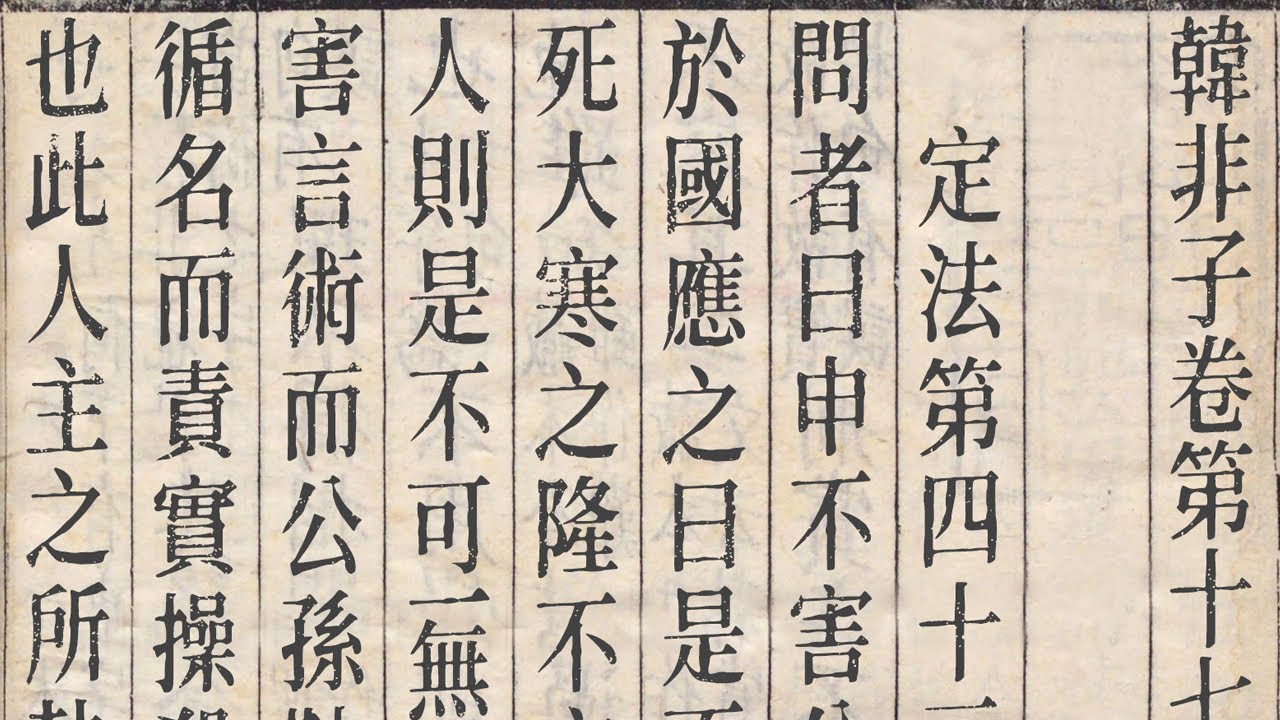 韓非子卷第十七
定法第四十
問者曰申不害公
於國應之曰是不
死大寒之隆不
人則是不可一無
害言術而公孫
循名而責實操
也此人主之所